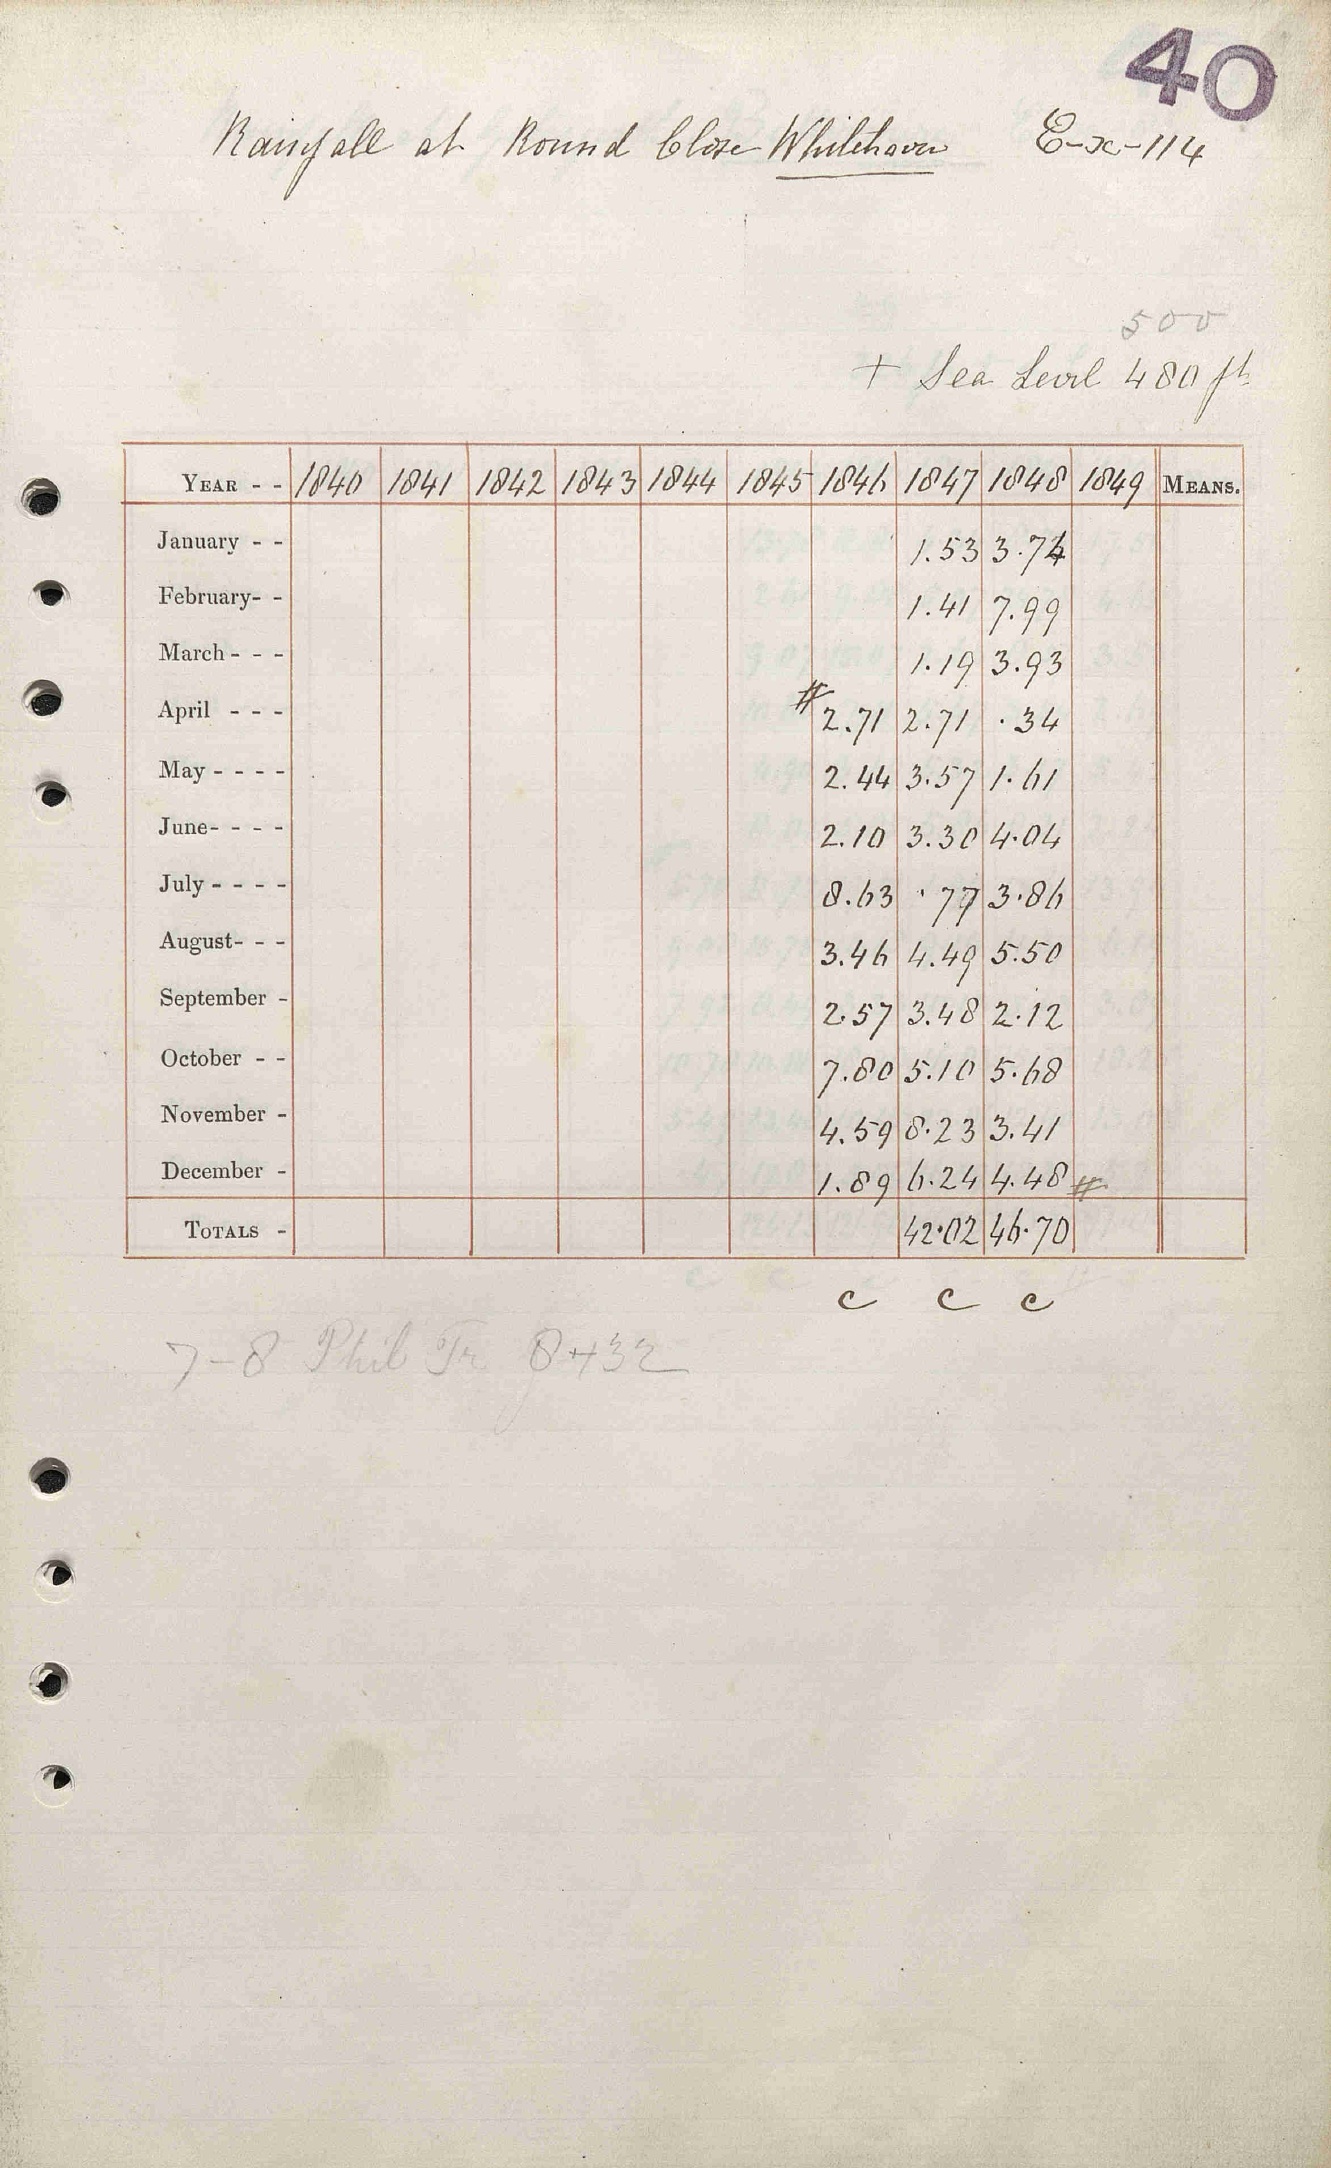 40
Rainfall at Round Close Whitehaven E-x-114
500
+ Sea Level 480 ft
YEAR - - 1840 1841 1842 1843 1844 1845 1846 1847 1848 1849 MEANS.
January - - 1.53 3.74
February- - 1.41 7.99
March - - - 1.19 3.93
April - - - # 2.71 2.71 .34
May - - - - 2.44 3.57 1.61
June- - - - 2.10 3.30 4.04
July - - - - 8.63 .77 3.86
August- - - 3.46 4.49 5.50
September - 2.57 3.48 2.12
October - - 7.80 5.10 5.68
November - 4.59 8.23 3.41
December - 1.89 6.24 4.48 #
TOTALS - 42.02 46.70
c c c
7-8 Phil Tr